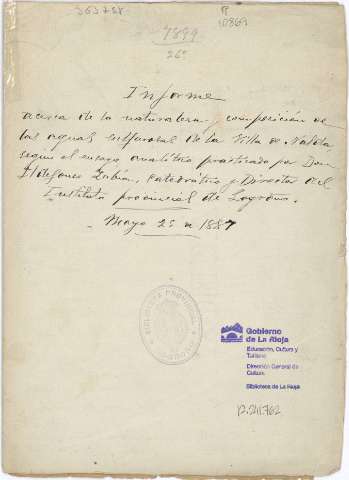 363728
R
10869
1899
26º
Informe
acerca de la naturaleza y composición de
las aguas sulfurosas de la Villa de Nalda
según el ensayo analítico practicado por Don
Ildefonso Zubía, Catedrático y Director del
Instituto provincial de Logroño.
Mayo 25 de 1887
BIBLIOTECA PROVINCIAL
LOGROÑO
Gobierno
de La Rioja
Educación, Cultura y
Turismo
Dirección General de
Cultura
Biblioteca de La Rioja
12.511.762